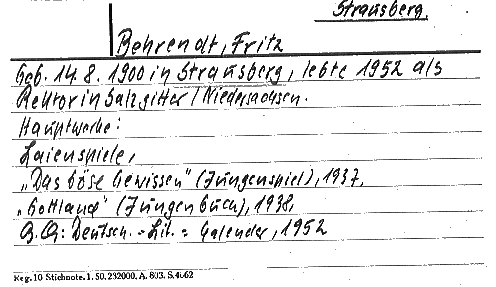 Strausberg.
Behrendt, Fritz
Geb. 14.8.1900 in Strausberg, lebte 1952 als
Rektor in Salzgitter / Niedersachsen.
Hauptwerke:
Laienspiele,
„Das böse Gewissen" (Jungenspiel), 1937,
„Gottland" (Jungenbuch), 1938,
Q.Q: Deutsch.-Lit.-Kalender, 1952
Reg. 10 Stichnote. 1. 50. 232000. A. 803. S. 4662